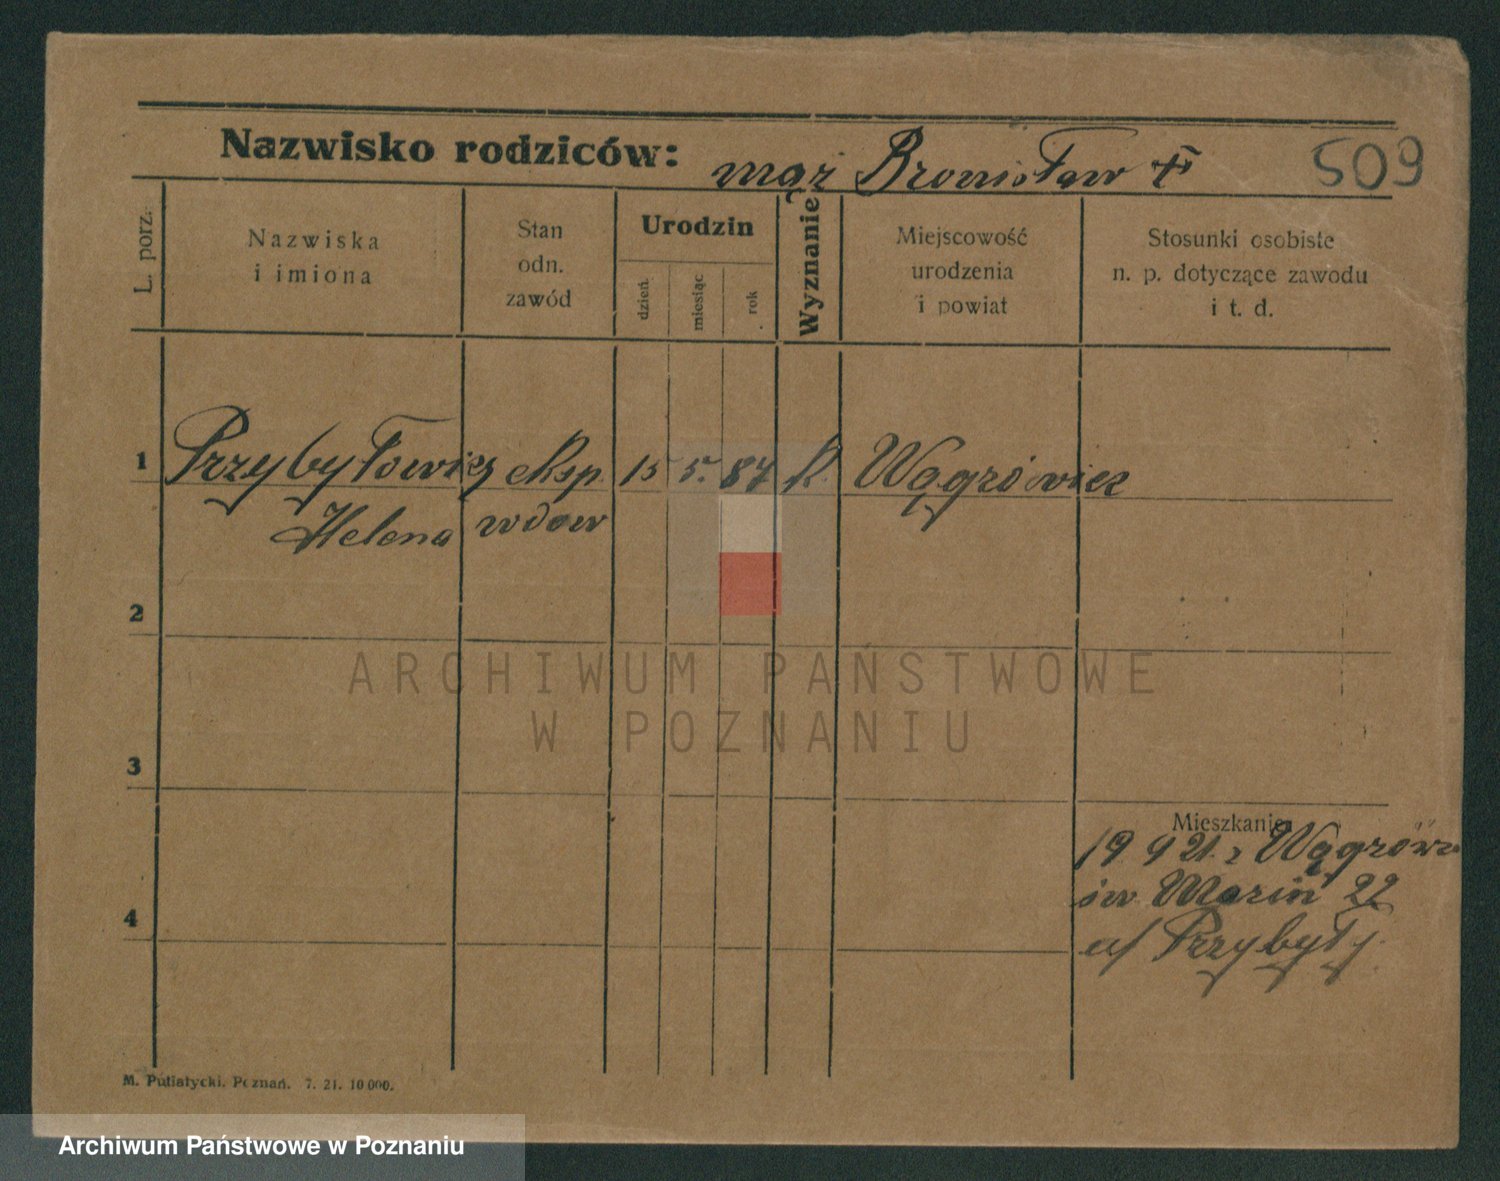 Nazwisko rodziców: mąż Bronisław +
509
L. porz.
Nazwiska
i imiona
Stan
odn.
zawód
Urodzin
dzień
miesiąc
rok
Wyznanie
Miejscowość
urodzenia
i powiat
Stosunki osobiste
n. p. dotyczące zawodu
i t. d.
1 Przybyłowicz eksp. 15 5. 87 k. Wągrówiec
Helena wdow
2
ARCHIWUM PAŃSTWOWE
W POZNANIU
3
Mieszkanie
19 9 21 z Wągrówca
św Marcin 22
Przybył
4
M. Putiatycki, Poznań. 7. 21. 10000.
Archiwum Państwowe w Poznaniu